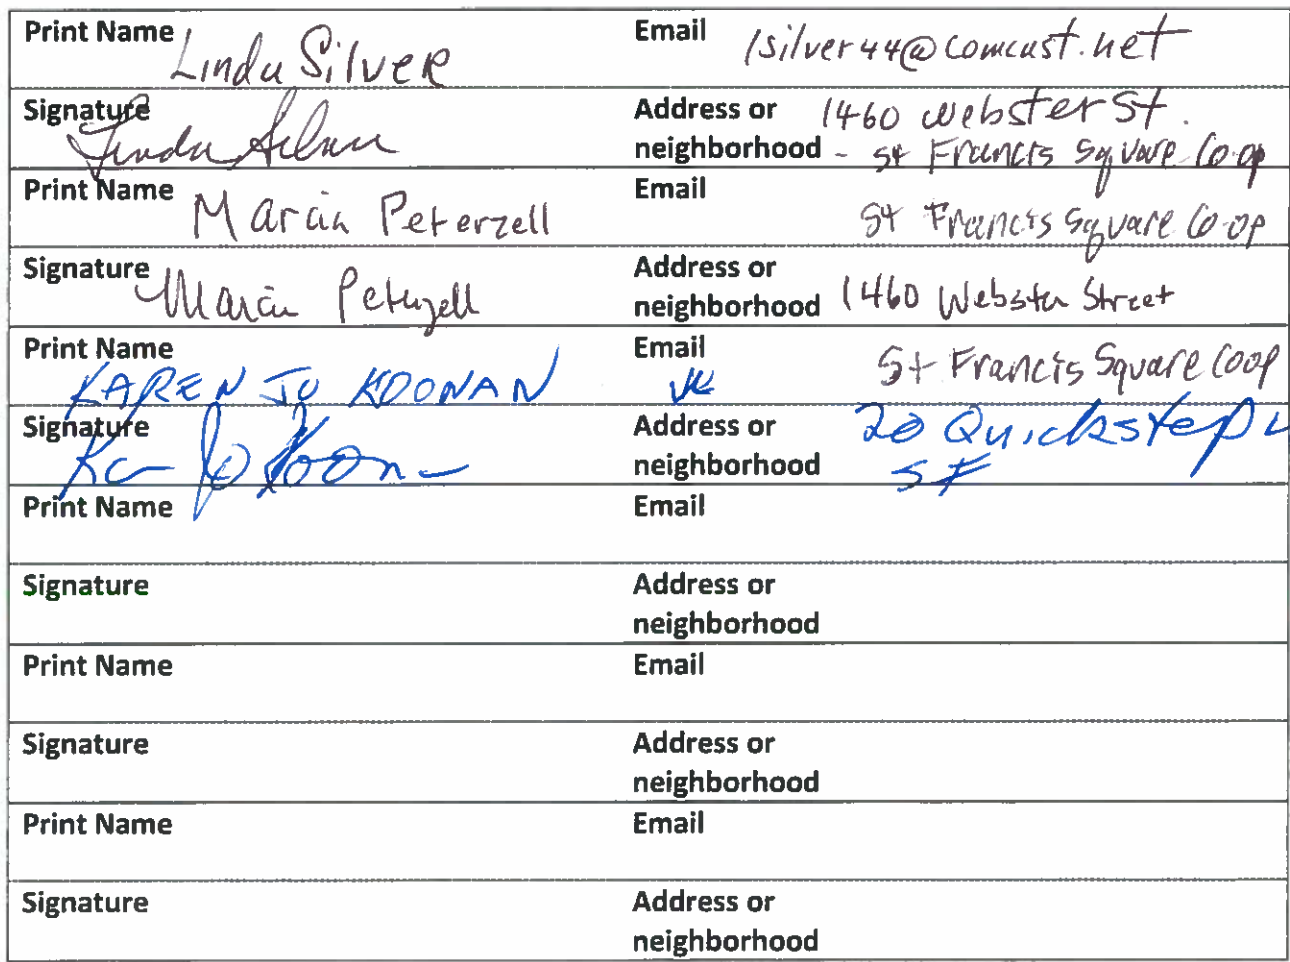 Print Name Linda Silver Email lsilver44@comcast.net
Signature Linda Silver Address or 1460 Webster St.
neighborhood - St Francis Square Co-op
Print Name Marcia Peterzell Email St Francis Square Co-op
Signature Marcia Peterzell Address or
neighborhood 1460 Webster Street
Print Name KAREN JO KOONAN Email St Francis Square Coop
Signature Kar Jo Koon Address or 20 Quickstep L
neighborhood SF
Print Name Email
Signature Address or
neighborhood
Print Name Email
Signature Address or
neighborhood
Print Name Email
Signature Address or
neighborhood